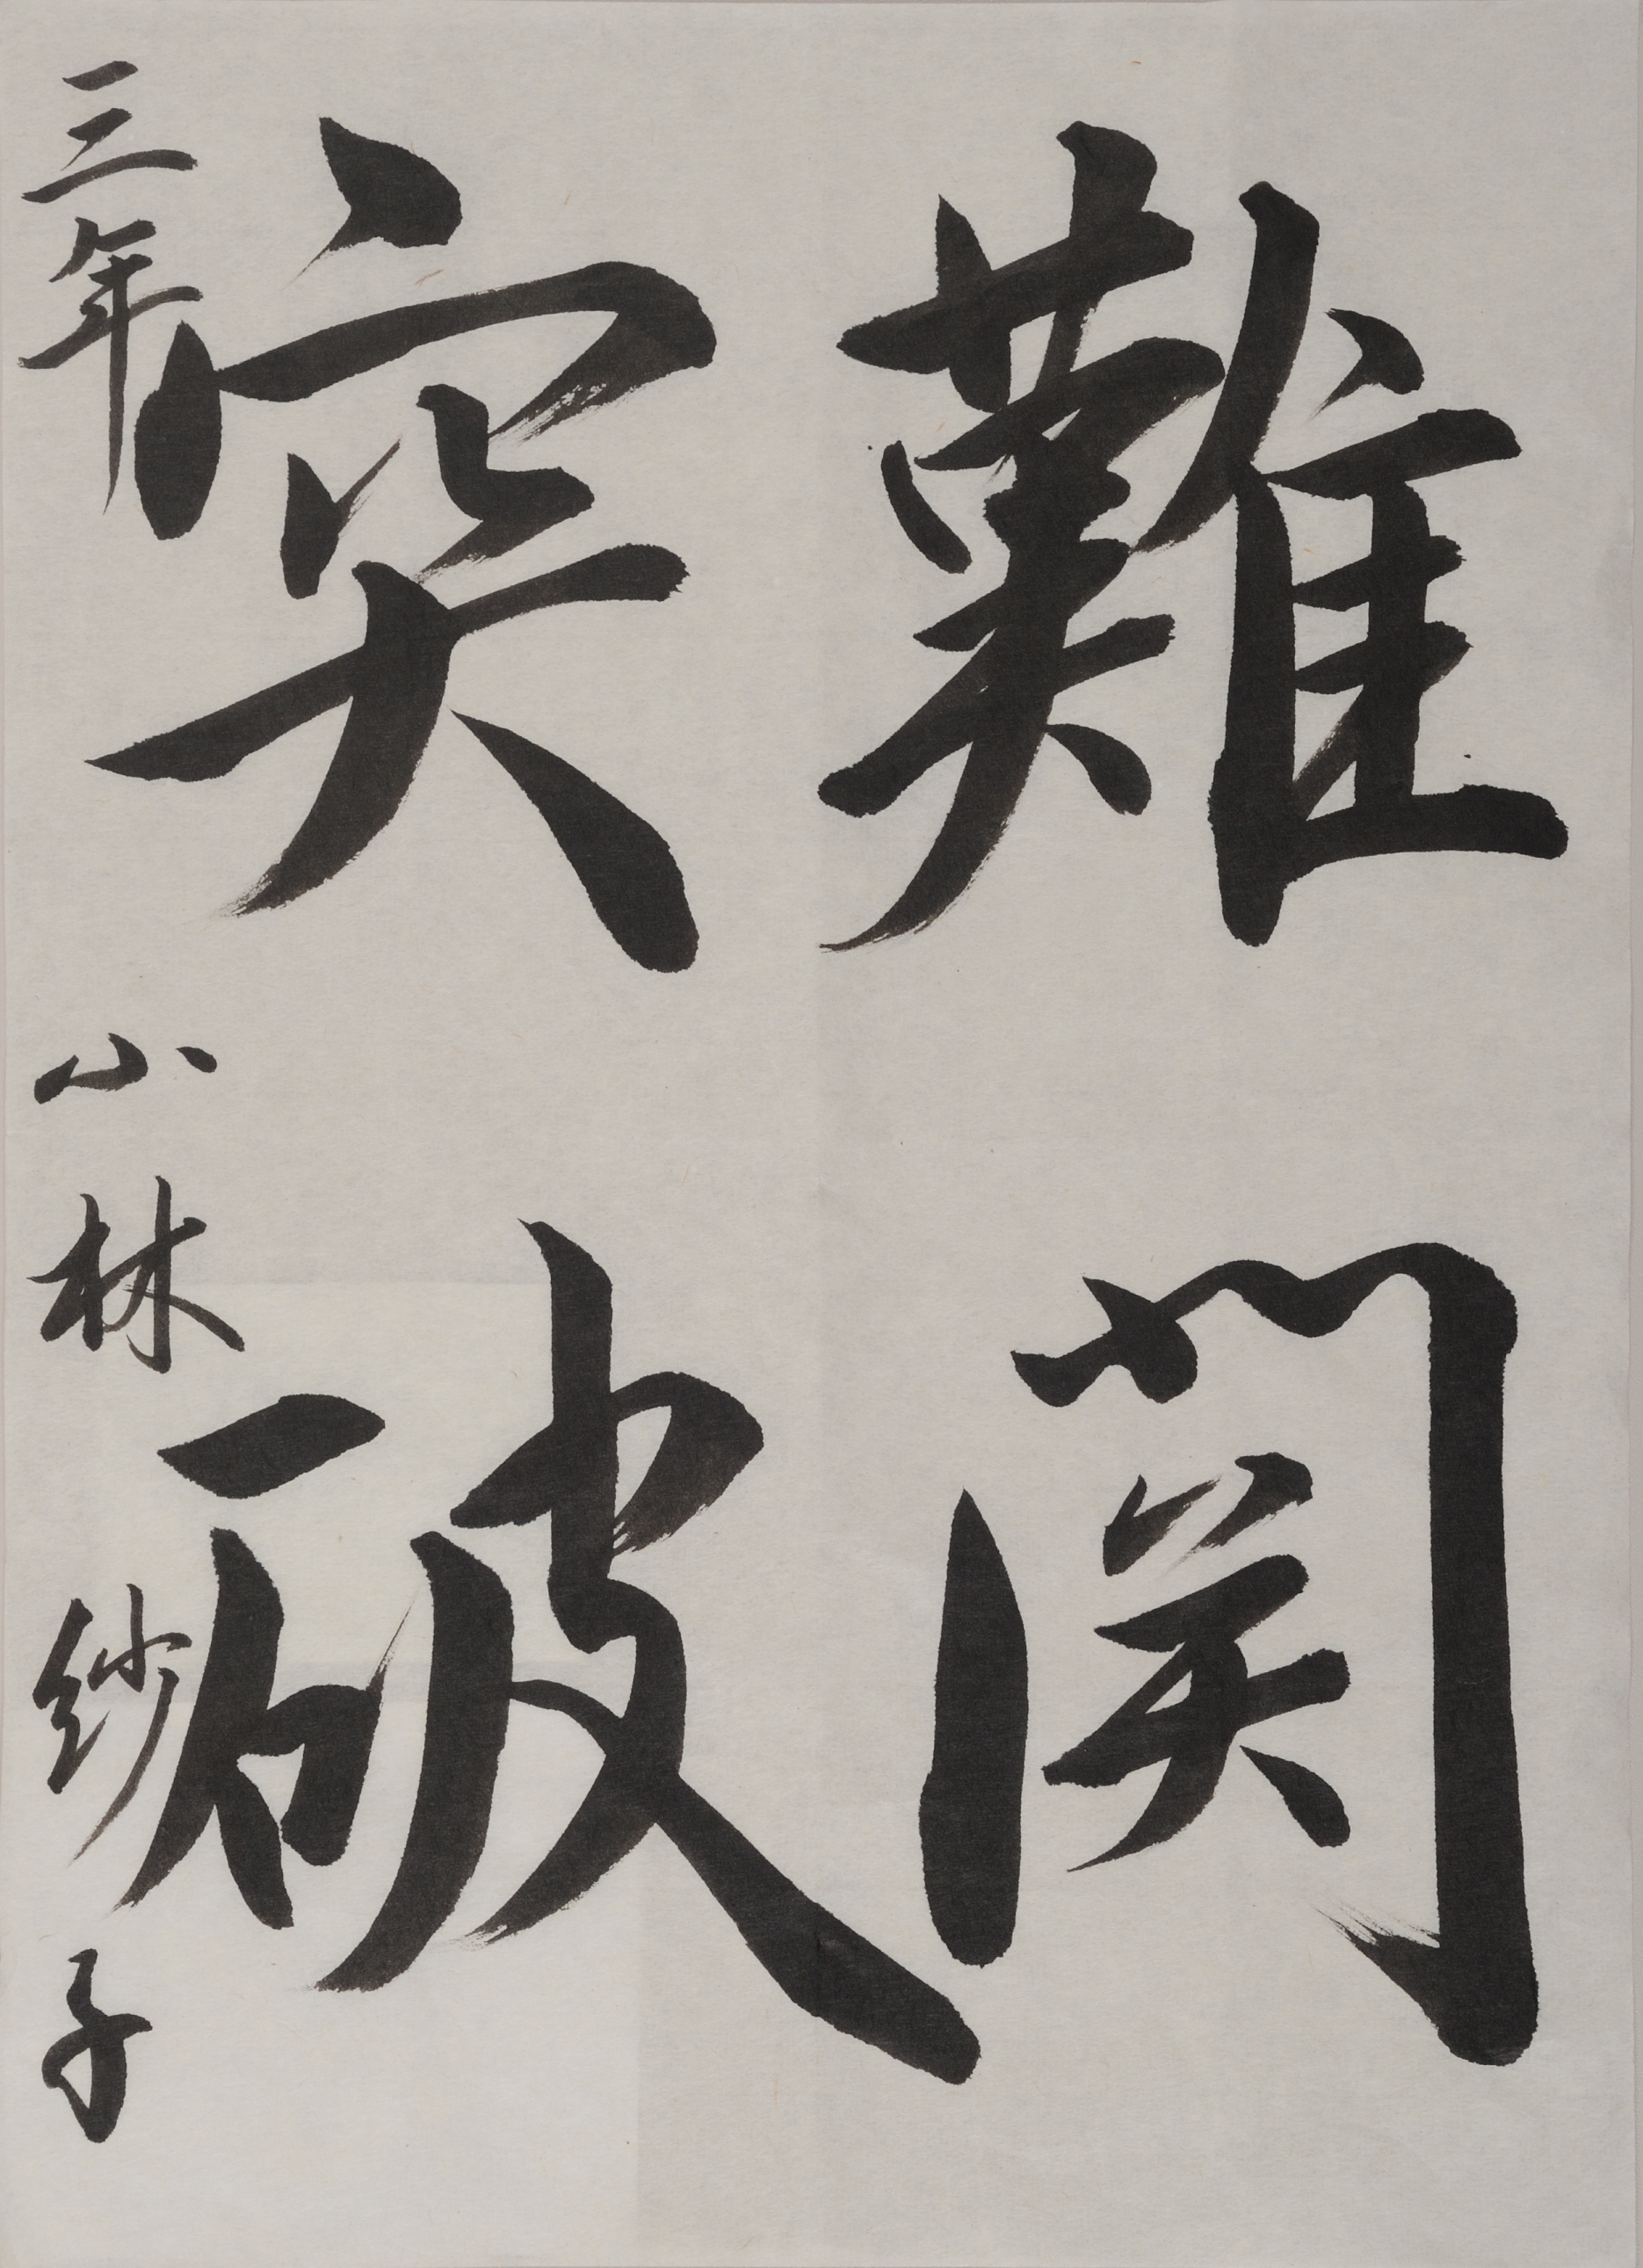 難関
突破
三年 小林紗子